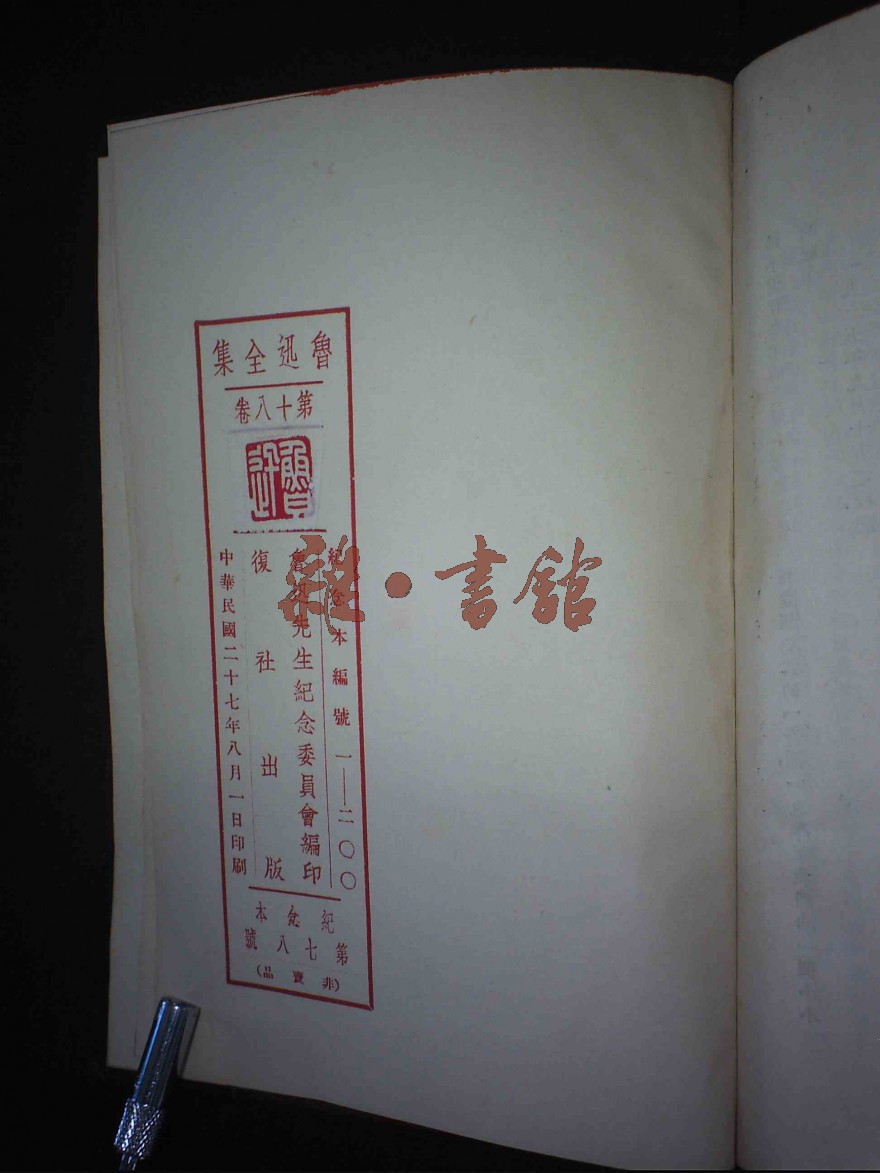 魯迅全集
第十八卷
魯迅
紀念本編號 一——二〇〇
魯迅先生紀念委員會編印
復社出版
中華民國二十七年八月一日印刷
紀念本
第七八號
(非賣品)
雜·書館